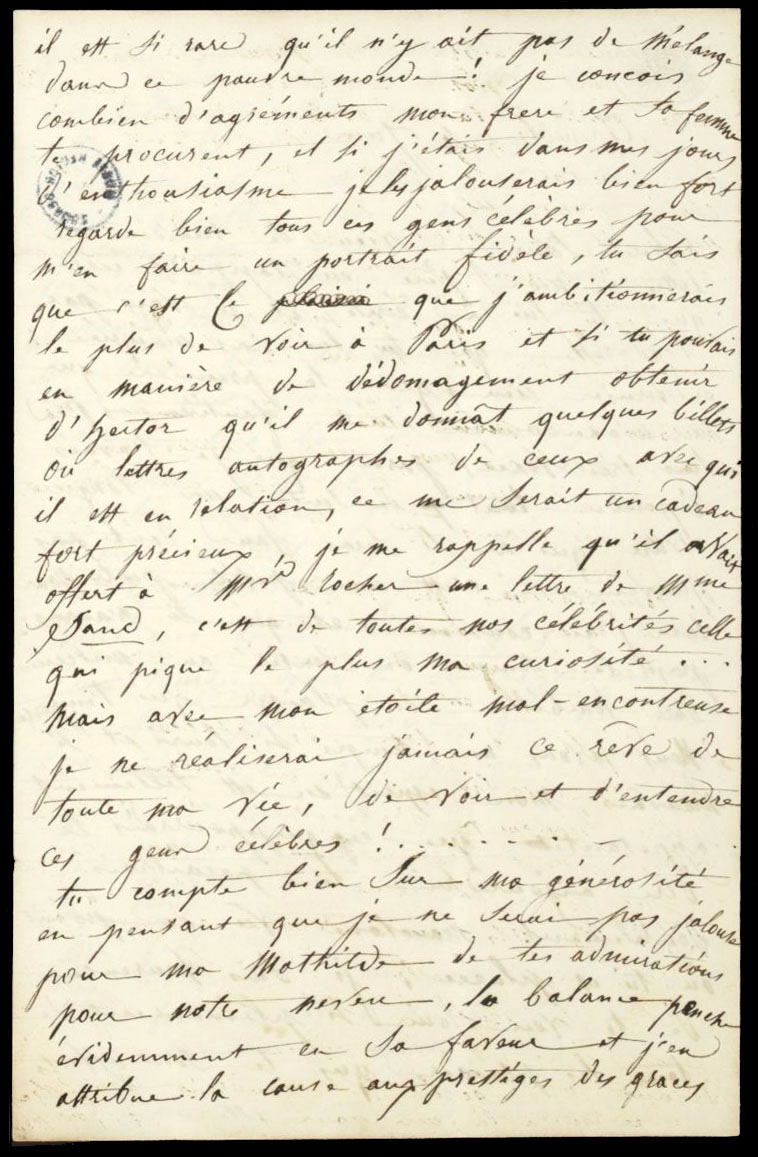 il est si rare qu'il n'y ait pas de mélange
dans ce pauvre monde ! je concois
combien d'agréments mon frere et sa femme
te procurent, et si j'étais dans mes jours
d'enthousiasme je les jalouserais bien fort
regarde bien tous ces gens célèbres pour
m'en faire un portrait fidèle, tu sais
que c'est ce que j'ambitionnerais
le plus de voir à Paris et si tu pouvais
en manière de dédomagement obtenir
d'hector qu'il me donnât quelques billets
où lettres autographes de ceux avec qui
il est en relation, ce me serait un cadeau
fort précieux, je me rappelle qu'il avait
offert à Mr rocher une lettre de Mme
Sand, c'est de toutes nos célébrités celle
qui pique le plus ma curiosité . . .
mais avec mon etoile mal-encontreuse
je ne réaliserai jamais ce rêve de
toute ma vie, de voir et d'entendre
ces gens célèbres ! . . . . . . .
tu compte bien sur ma générosité
en pensant que je ne serai pas jalouse
pour ma Mathilde de tes admirations
pour notre neveu, la balance penche
évidemment en sa faveur et j'en
attribue la cause aux prestiges des graces